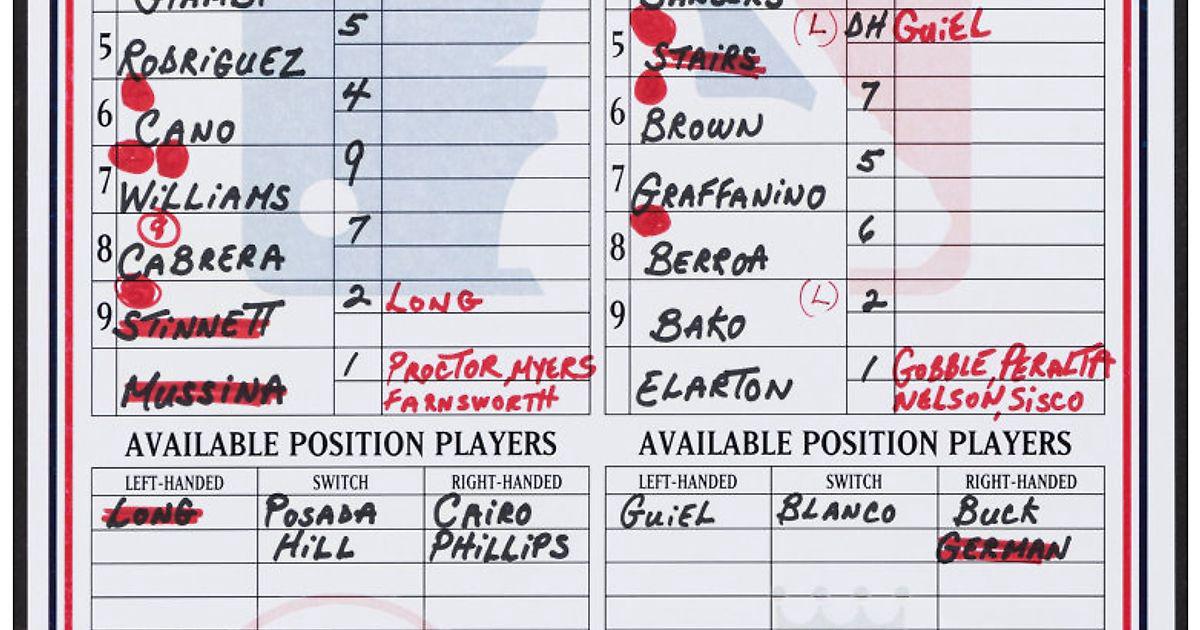 GIAMBI
SANDERS
5 RODRIGUEZ 5
5 STAIRS (L) DH GUIEL
6 CANO 4
6 BROWN 7
7 WILLIAMS 9
7 GRAFFANINO 5
9
8 CABRERA 7
8 BERROA 6
9 STINNETT 2 LONG
9 BAKO (L) 2
MUSSINA 1 PROCTOR, MYERS
FARNSWORTH
ELARTON 1 GOBBLE, PERALTA
NELSON, SISCO
AVAILABLE POSITION PLAYERS
LEFT-HANDED SWITCH RIGHT-HANDED
LONG POSADA CAIRO
HILL PHILLIPS
AVAILABLE POSITION PLAYERS
LEFT-HANDED SWITCH RIGHT-HANDED
GUIEL BLANCO BUCK
GERMAN